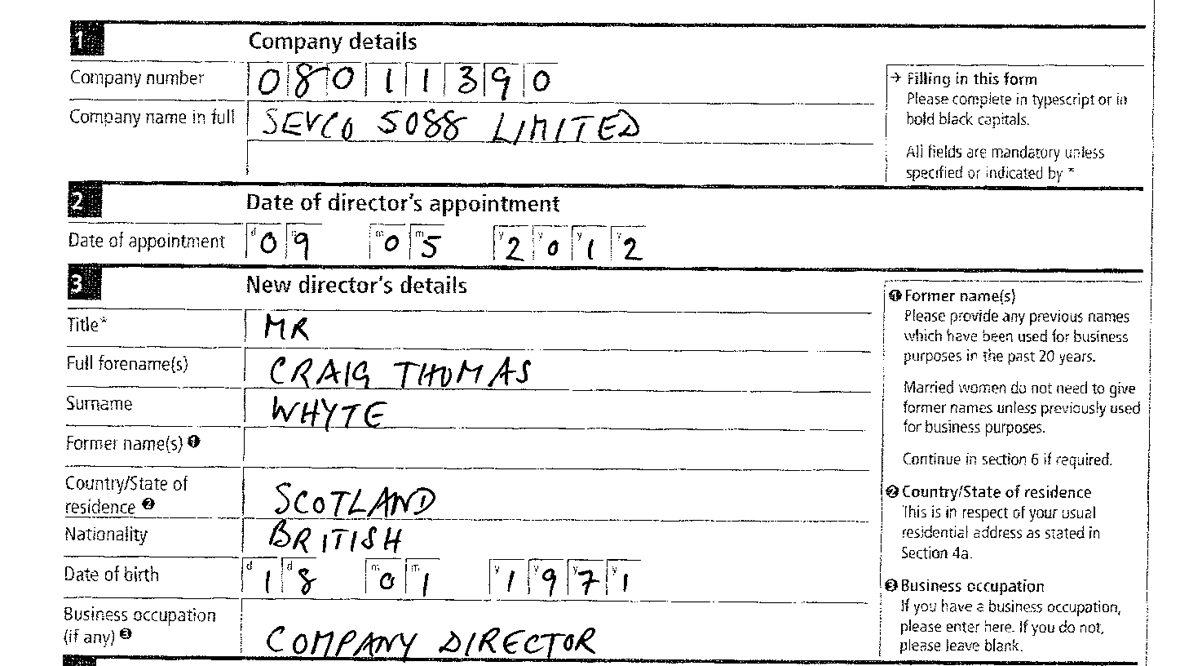 1 Company details
Company number 08011390
Company name in full SEVCO 5088 LIMITED
→ Filling in this form
Please complete in typescript or in
bold black capitals.
All fields are mandatory unless
specified or indicated by *
2 Date of director's appointment
Date of appointment d0 d9 m0 m5 y2 y0 y1 y2
3 New director's details
Title* MR
Full forename(s) CRAIG THOMAS
Surname WHYTE
Former name(s) ❶
Country/State of
residence ❷ SCOTLAND
Nationality BRITISH
Date of birth d1 d8 m0 m1 y1 y9 y7 y1
Business occupation
(if any) ❸ COMPANY DIRECTOR
❶ Former name(s)
Please provide any previous names
which have been used for business
purposes in the past 20 years.
Married women do not need to give
former names unless previously used
for business purposes.
Continue in section 6 if required.
❷ Country/State of residence
This is in respect of your usual
residential address as stated in
Section 4a.
❸ Business occupation
If you have a business occupation,
please enter here. If you do not,
please leave blank.